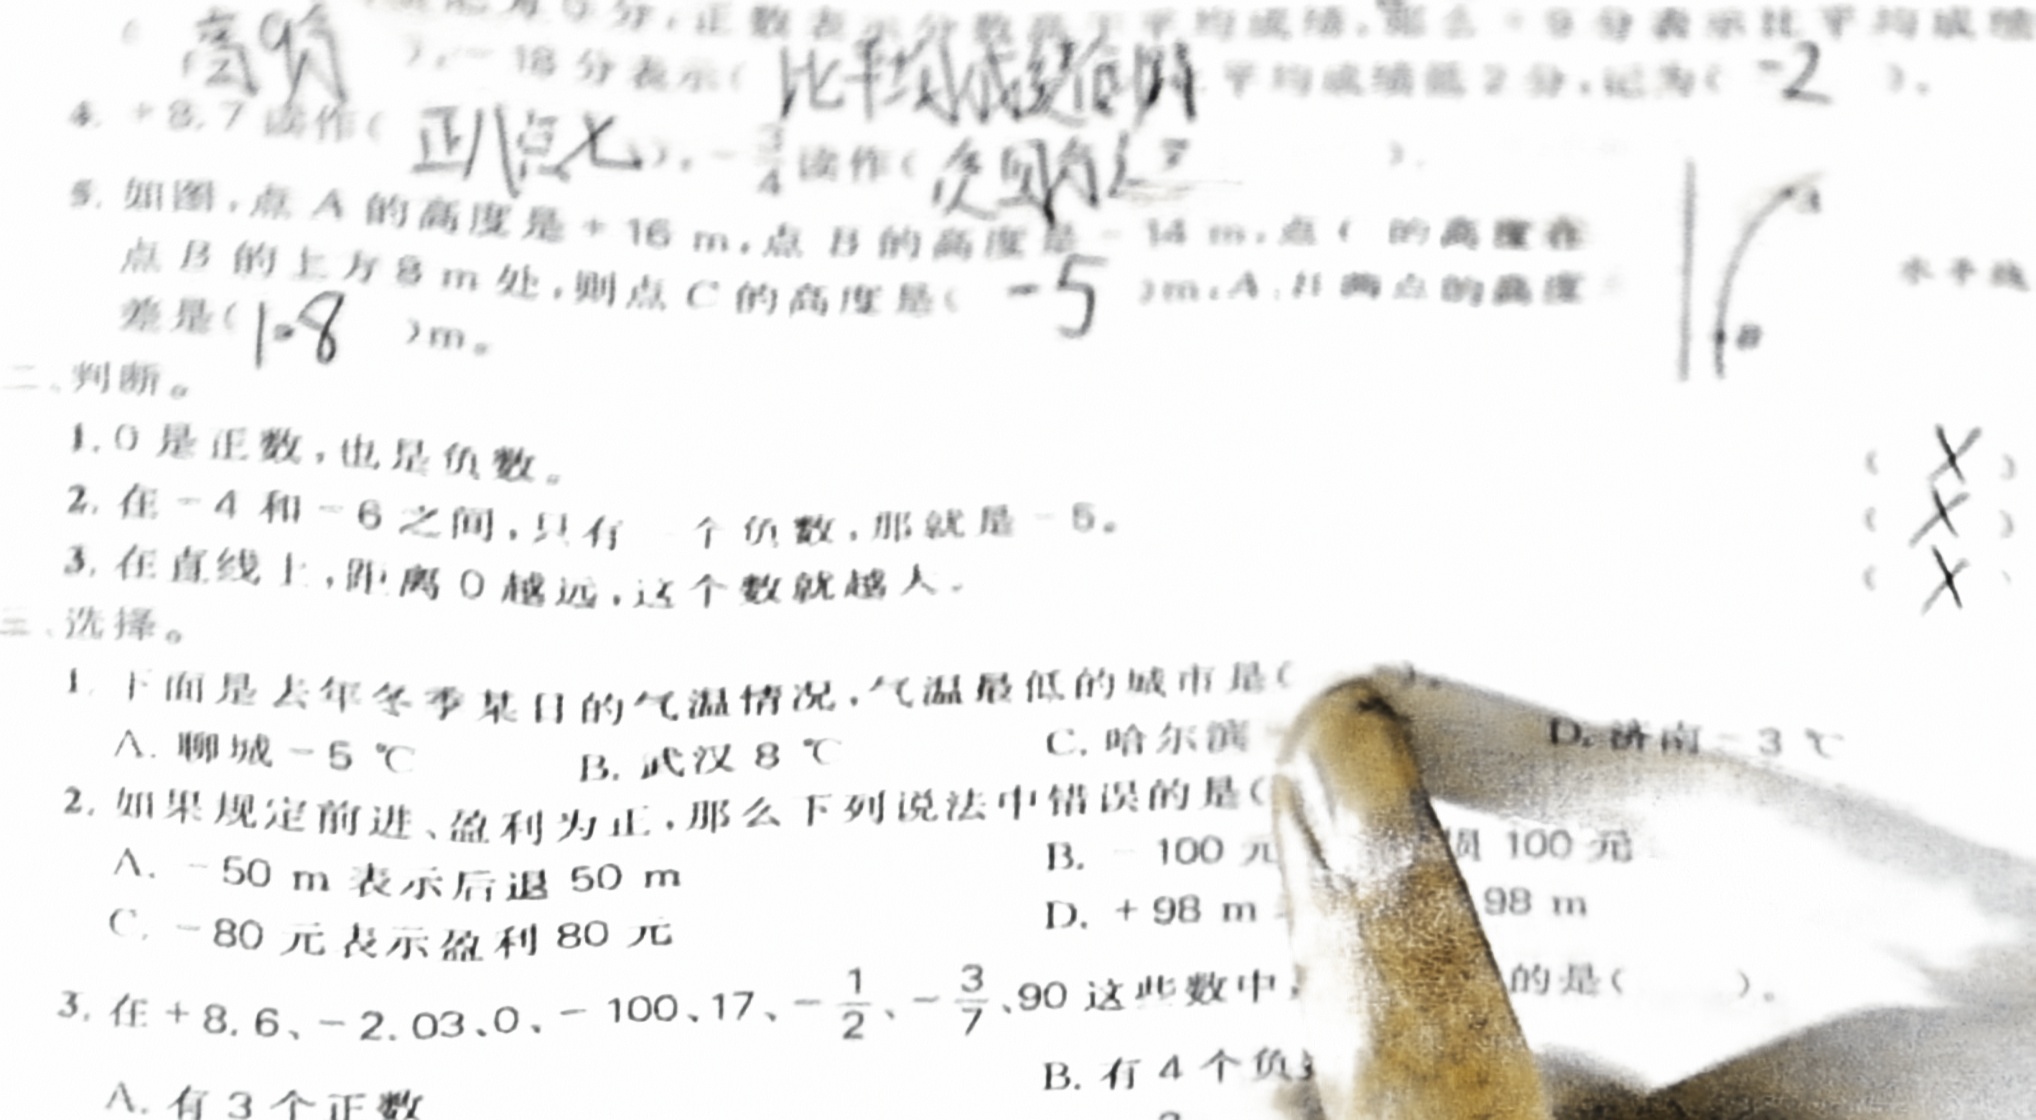 分,正数表示分数高于平均成绩,那么+9分表示比平均成绩
(高9分),-18分表示(比平均成绩低18分 平均成绩低2分,记为(-2)。
4. +8.7读作(正八点七),-3/4读作( )。
5. 如图,点A的高度是+16 m,点B的高度是-14 m,点C的高度在
点B的上方8 m处,则点C的高度是(-5)m,A、B两点的高度
差是(1.8)m。
A
水平线
B
二、判断。
1. 0是正数,也是负数。(×)
2. 在-4和-6之间,只有一个负数,那就是-5。(×)
3. 在直线上,距离0越远,这个数就越大。(×)
三、选择。
1. 下面是去年冬季某日的气温情况,气温最低的城市是( )。
A. 聊城-5 ℃ B. 武汉8 ℃ C. 哈尔滨- D. 济南-3 ℃
2. 如果规定前进、盈利为正,那么下列说法中错误的是(
A. -50 m表示后退50 m B. -100元 损100元
C. -80元表示盈利80元 D. +98 m 98 m
3. 在+8.6、-2.03、0、-100、17、-1/2、-3/7、90这些数中, 的是( )。
A. 有3个正数 B. 有4个负